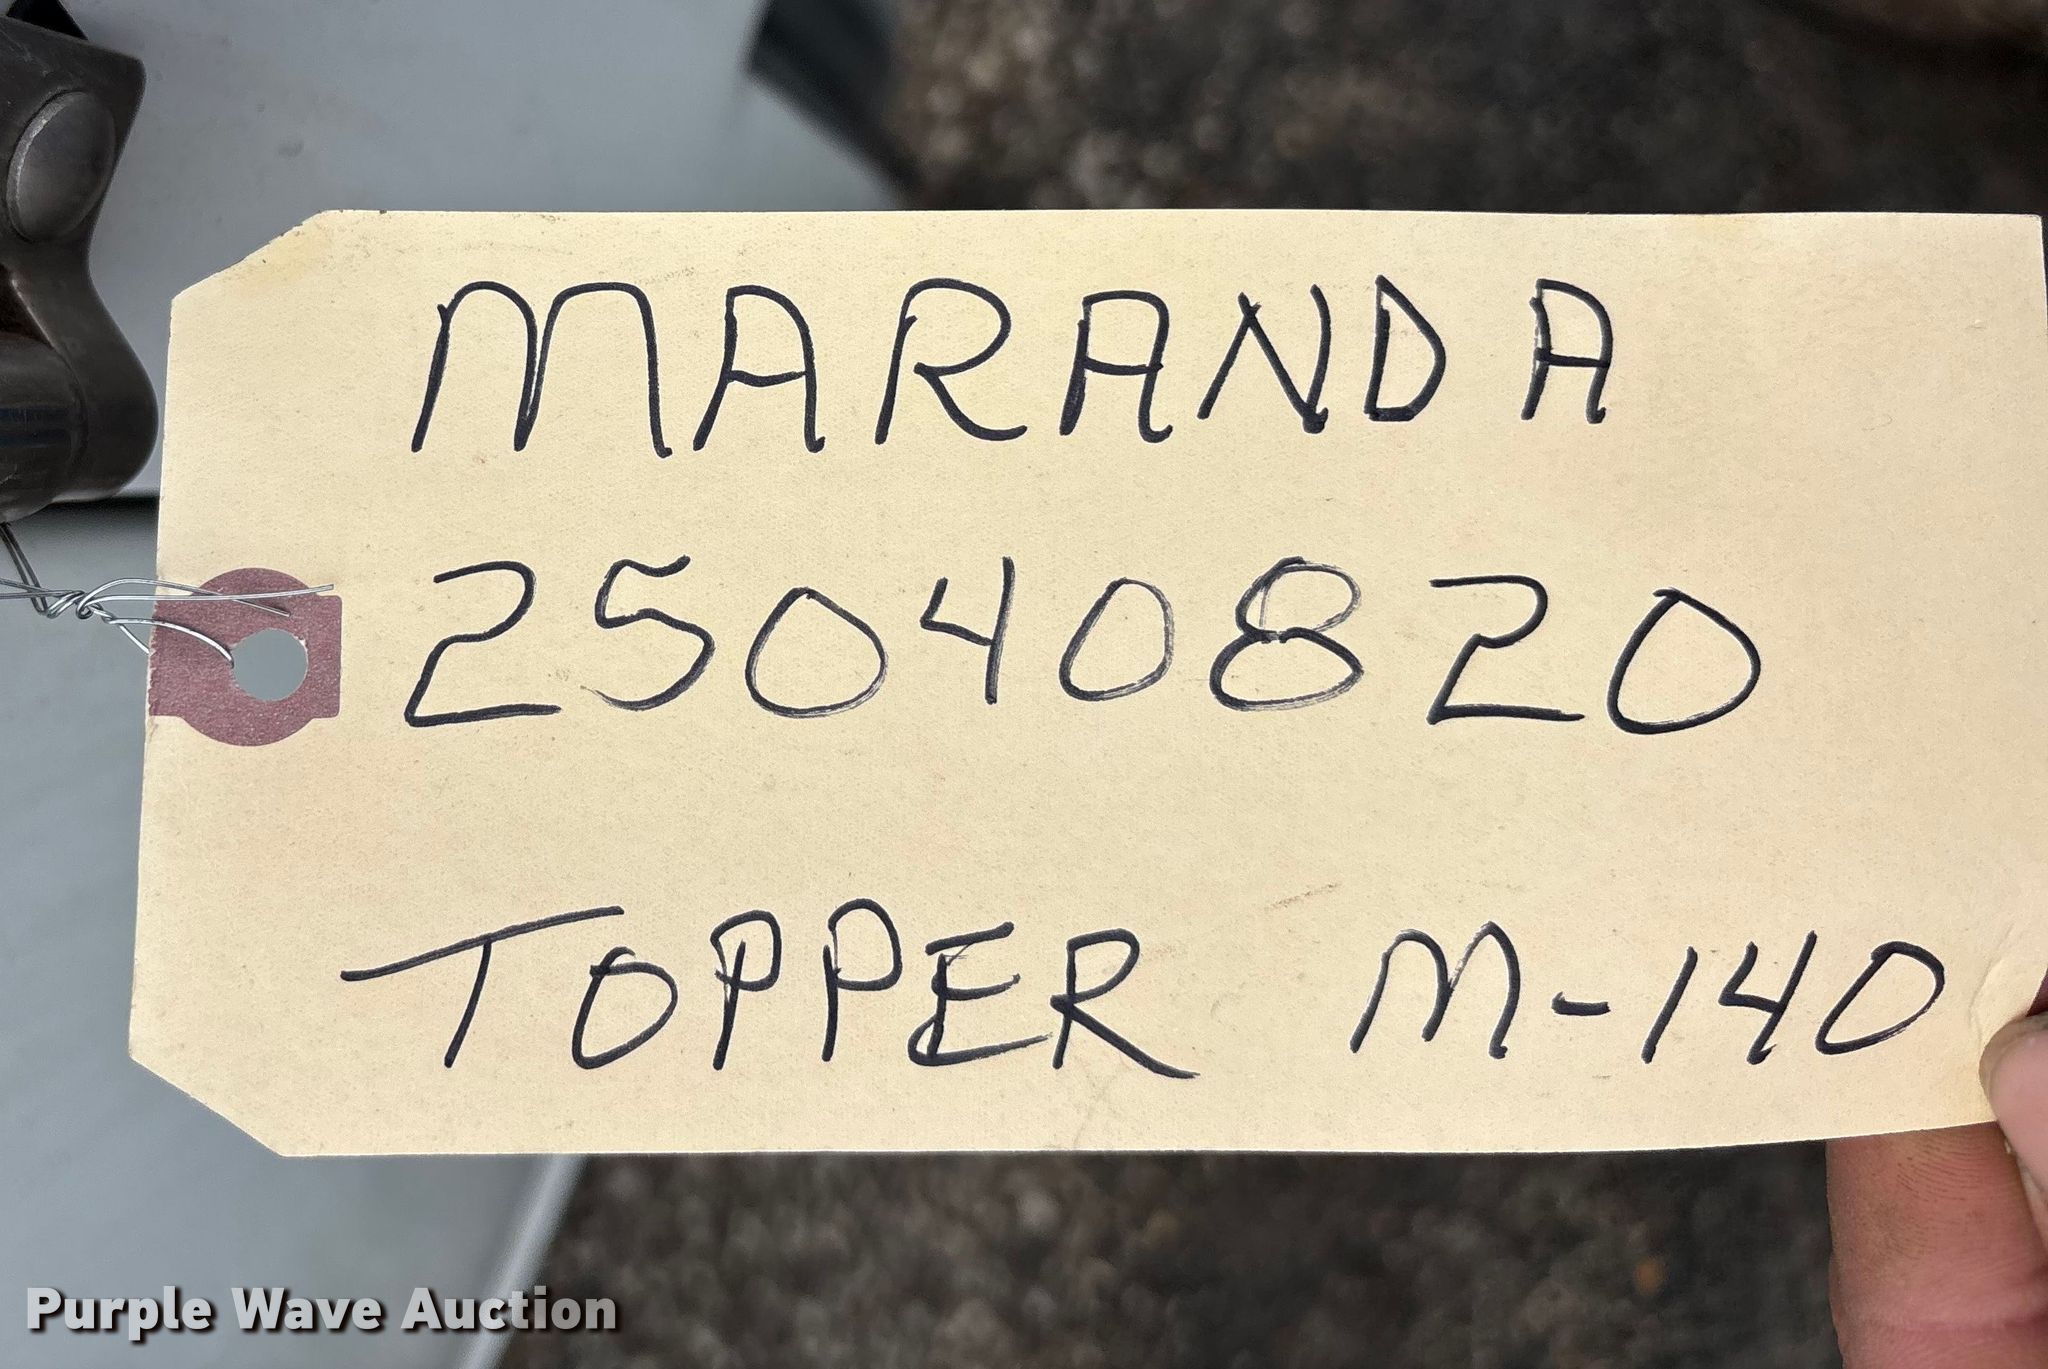 MARANDA
25040820
TOPPER M-140
Purple Wave Auction